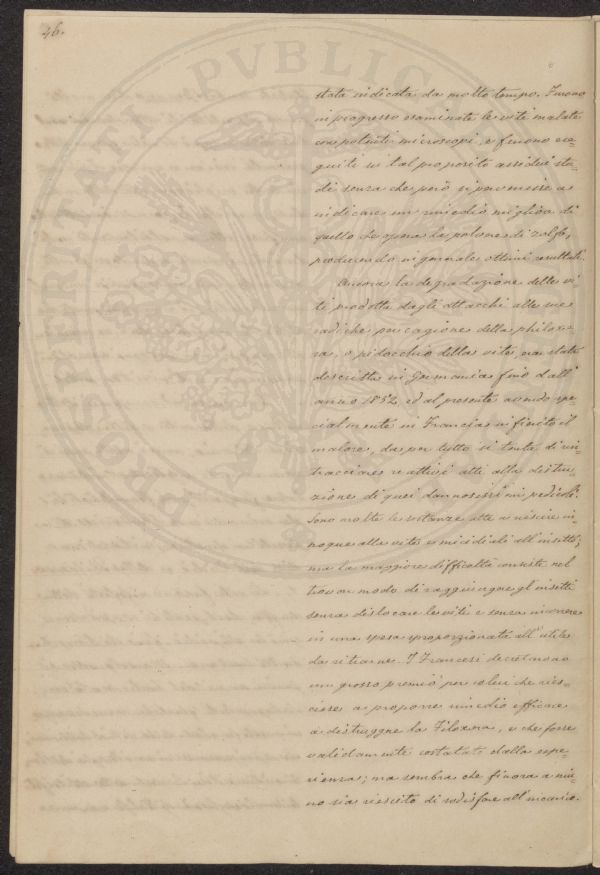 46.
PROSPERITATI PVBLIC
stata indicata da molto tempo. Furono
in progresso esaminate le viti malate
con potenti microscopi, e furono ese-
guiti in tal proposito assidui stu-
di senza che però si pervenisse a
indicare un rimedio miglior di
quello che opera la polvere di zolfo,
producendo in generale ottimi resultati.
Ancora la degradazione delle vi-
ti prodotta dagli attacchi alle sue
radiche per cagione della philoxe-
ra, o pidocchio della vite, era stata
descritta in Germania fino dall'
anno 1852, ed al presente avendo spe-
cialmente in Francia infierito il
malore, da per tutto si tenta di rin-
tracciare reattivi atti alla distru-
zione di quei dannosissimi pedicoli.
Sono molte le sostanze atte a riescire in-
noque alla vite e micidiali all'insetti;
ma la maggiore difficoltà consiste nel
trovar modo di raggiungere gl'insetti
senza dislocare le viti e senza incorrere
in una spesa sproporzionata all'utile
da ritrarne. I Francesi decretarono
un grosso premio per colui che ries-
cisse a proporre rimedio efficace
a distruggere la Filoxera, e che fosse
validamente costatato dalla espe-
rienza; ma sembra che finora a niu-
no sia riescito di sodisfare all'incarico.